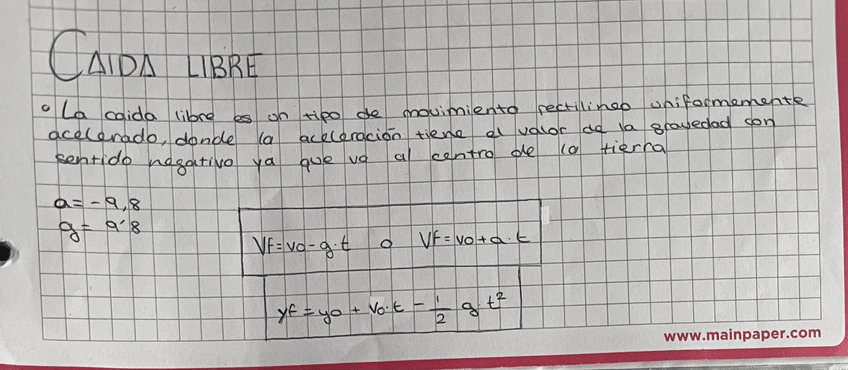 CAIDA LIBRE
• La caida libre es un tipo de movimiento rectilineo uniformemente
acelerado, donde la aceleración tiene el valor de la gravedad con
sentido negativo ya que va al centro de la tierra
a = -9,8
g = 9'8
Vf = vo - g·t o Vf = vo + a·t
yf = yo + vo·t - 1/2 g·t²
www.mainpaper.com